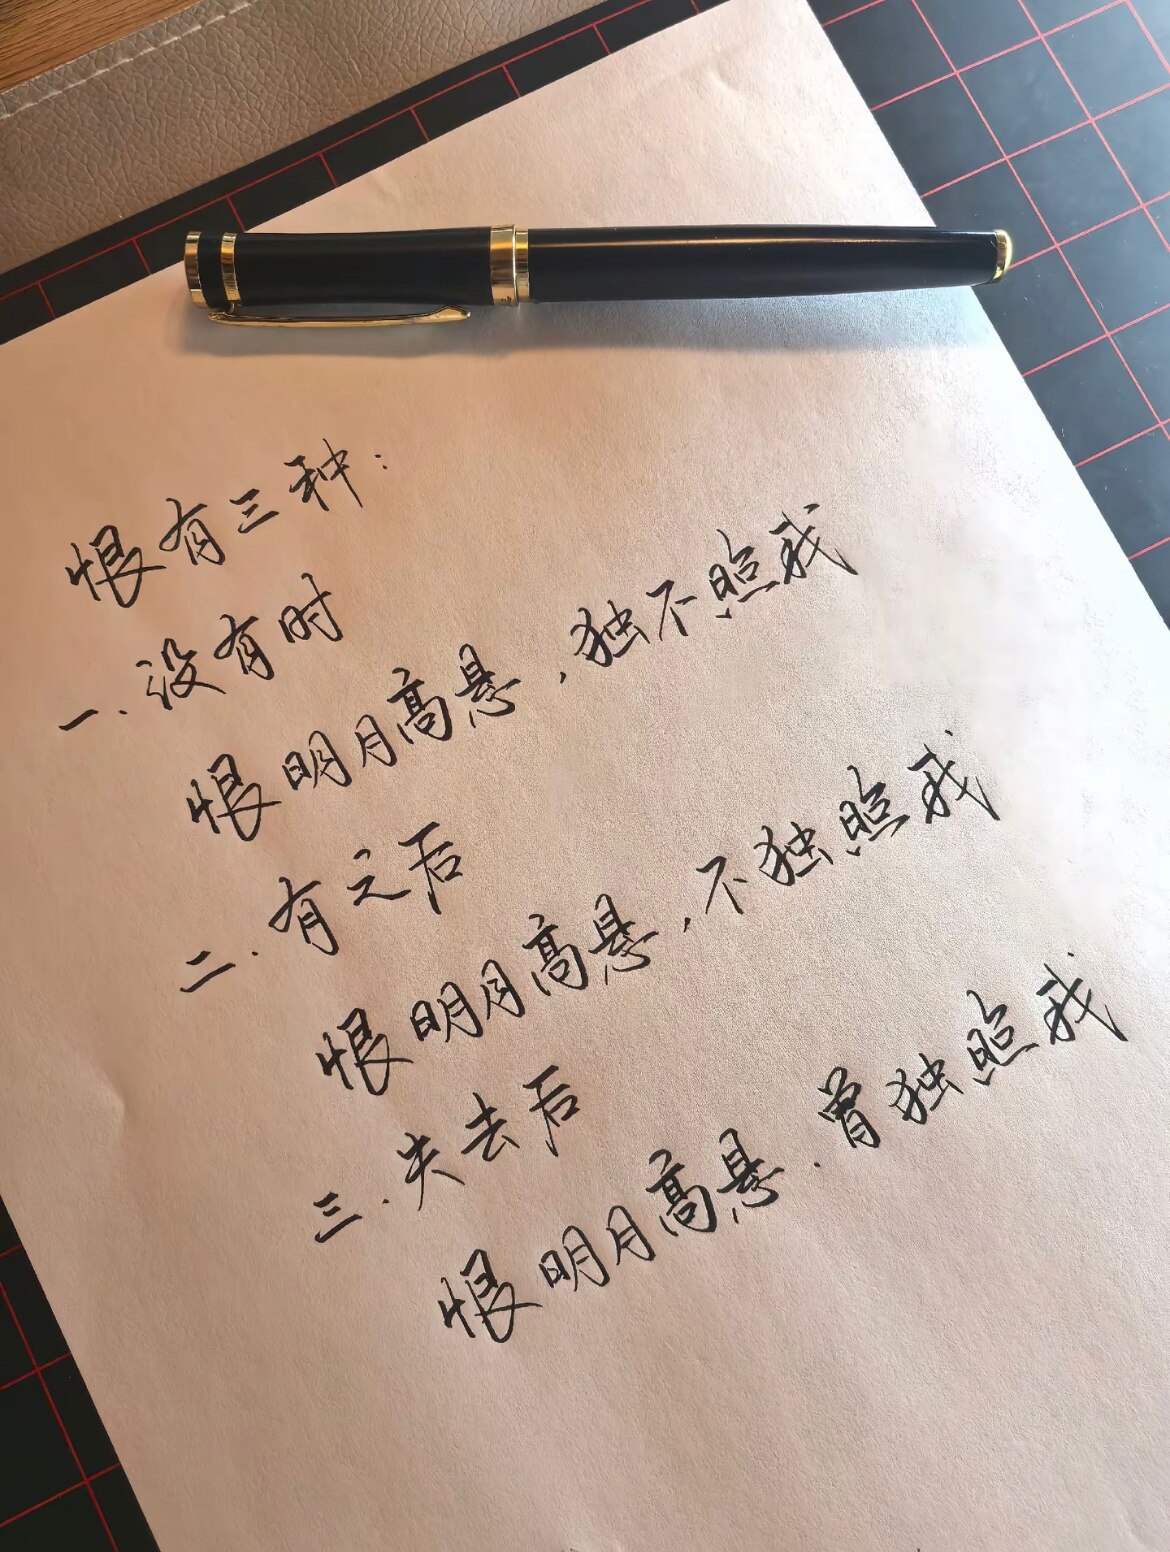 恨有三种：
一.没有时
恨明月高悬，独不照我
二.有之后
恨明月高悬，不独照我
三.失去后
恨明月高悬.曾独照我